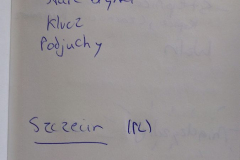 Klucz
Podjuchy
Szczecin (PL)